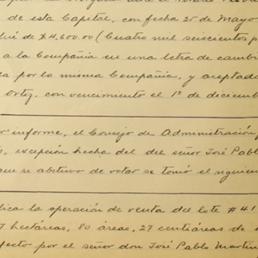 de esta Capital, con fecha 25 de Mayo
de $4,600.00 (Cuatro mil seiscientos p
a la Compañia en una letra de camb
ca por la misma Compañia, y aceptada
Ortez, con vencimiento el 1º de diciemb
or informe, el Consejo de Administración,
s, excepción hecha del del señor José Pabl
en se abstuvo de votar se tomó el siguien
lica la operación de venta del lote #41
7 hectáreas, 80 áreas, 27 centiáreas de
fecto por el señor don José Pablo Martín